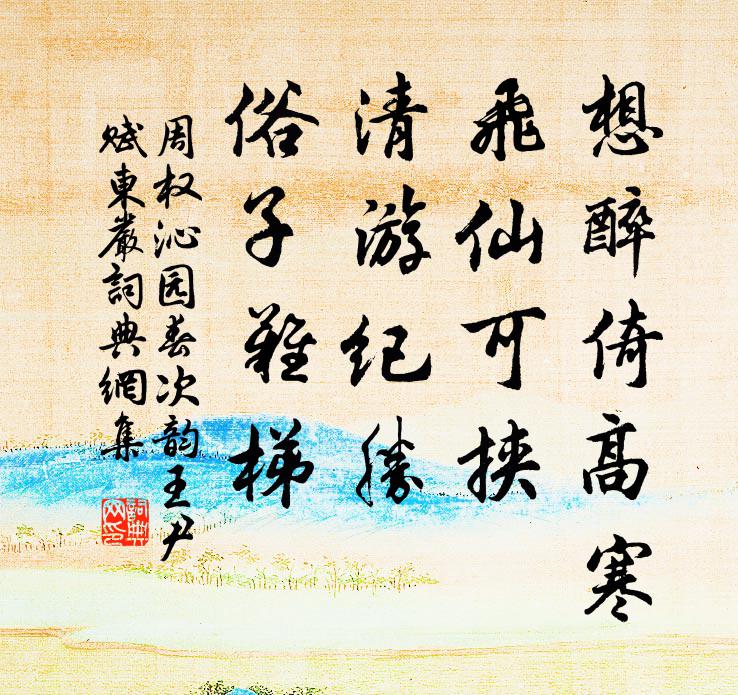 想醉倚高寒
飛仙可挾
清游紀勝
俗子難梯
周权沁园春次韵王尹
賦東巖詞典網集
詞典网印